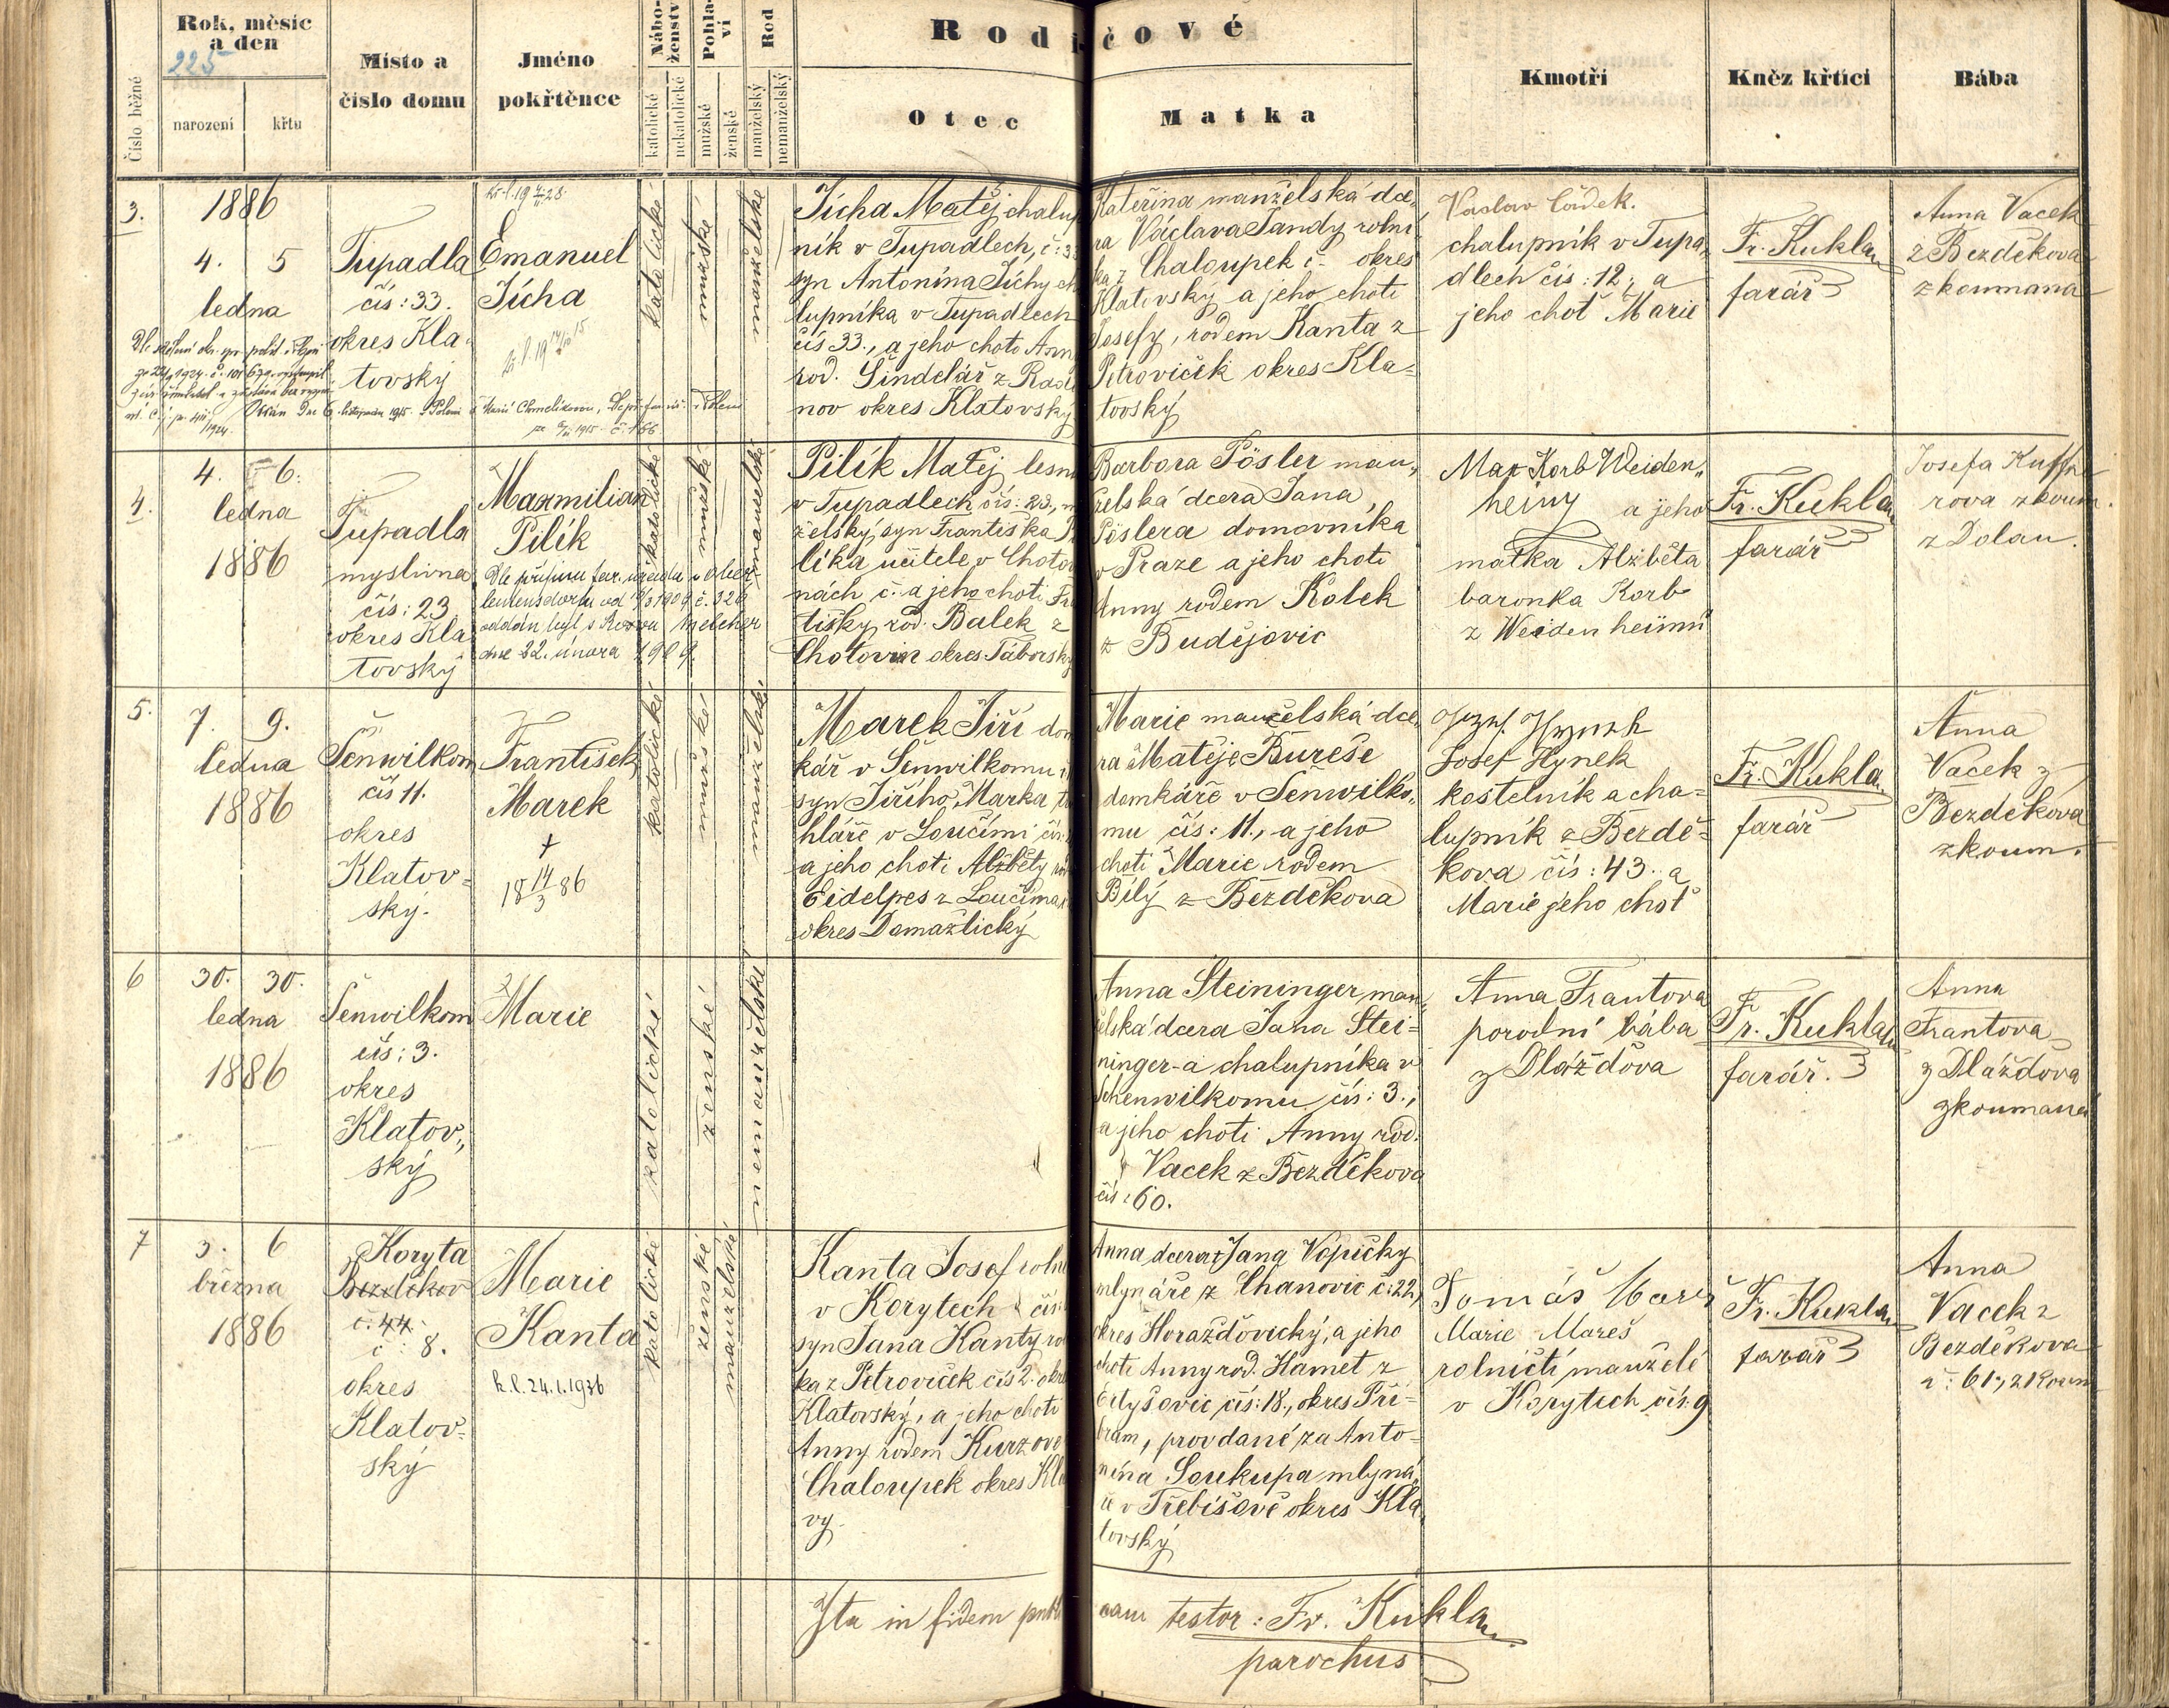 Rok, měsíc
a den
225
narození
křtu
Číslo běžné
Místo a
číslo domu
Jméno
pokřtěnce
Nábo-
ženství
katolické
nekatolické
Pohla-
ví
mužské
ženské
Rod
manželský
nemanželský
Rodičové
Otec
Matka
Kmotři
Kněz křtící
Bába
3.
1886
4. 5
ledna
Tupadla
čís: 33.
okres Kla-
tovský
Emanuel
Jícha
katolické
mužské
manželské
Jícha Matěj chalup
ník v Tupadlech, č: 33
syn Antonína Jíchy ch
lupníka v Tupadlech
čís 33., a jeho choti Ann
rod. Šindelář z
nov okres Klatovský
Kateřina manželská dce-
ra Václava Tandy rolní
ka z Chaloupek č. okres
Klatovský a jeho choti
Josefy, rodem Kanta z
Petroviček okres Kla-
tovský
Václav
chalupník v Tupa-
dlech čís: 12, a
jeho choť Marie
Fr. Kukla
farář
Anna Vacek
z Bezděkova
zkoumaná
4.
4. 6.
ledna
1886
Tupadla
myslivna
čís: 23
okres Kla
tovský
Maxmilian
Pilík
dne 22. února 1909.
katolické
mužské
manželské
Pilík Matěj lesn
v Tupadlech čís: 23.,
želský syn Františka P
líka učitele v Choto
nách č. a jeho choti Fr
tišky rod. Balek z
Chotovin okres Táborský
Barbora Pösler man-
želská dcera Jana
Pöslera domovníka
v Praze a jeho choti
Anny rodem Kolek
z Budějovic
Max Korb Weiden-
heimu a jeho
matka Alžběta
baronka Korb
z Weidenheimu
Fr. Kukla
farář
Josefa
rova zkoum.
z Dolan.
5.
7. 9.
ledna
1886
Šenwilkom
čís 11.
okres
Klatov-
ský.
František
Marek
†
18 14/3 86
katolické
mužské
manželské
Marek Jiří dom
kář v Šenwilkomu
syn Jiřího Marka, t
hláře v Loučimi čís.
a jeho choti Alžběty
Eidelpes z Loučima
okres Domažlický
Marie manželská dce
ra Matěje Bureše
domkáře v Šenwilko-
mu čís: 11., a jeho
choti Marie rodem
Bílý z Bezděkova
Jozef Hynek
Josef Hynek
kostelník a cha-
lupník z Bezdě-
kova čís: 43. a
Marie jeho choť
Fr. Kukla
farář
Anna
Vacek z
Bezděkova
zkoum.
6
30. 30.
ledna
1886
Šenwilkom
čís: 3.
okres
Klatov-
ský
Marie
katolické
ženské
nemanželské
Anna Steininger man-
želská dcera Jana Stei-
ninger-a chalupníka v
Schenwilkomu čís: 3.,
a jeho choti Anny rod.
Vacek z Bezděkova
čís: 60.
Anna Frantova
porodní bába
z Dlážďova
Fr. Kukla
farář.
Anna
Frantova
z Dlážďova
zkoumaná
7
3. 6
března
1886
Koryta
Bezděkov
č. 44.
č: 8.
okres
Klatov-
ský
Marie
Kanta
k.l. 24.1.1936
katolické
ženské
manželské
Kanta Josef roln
v Korytech čís
syn Jana Kanty ro
ka z Petroviček čís 2. okre
Klatovský, a jeho choti
Anny rodem Kurzovo
Chaloupek okres Kla
vy.
Anna dcera Jana Vopičky
mlynáře z Chanovic č: 22,
okres Horažďovický, a jeho
choti Anny rod. Hamet z
čís: 18., okres Pří-
bram, provdané za Anto-
nína Soukupa mlyná-
ře v Třebíšově okres Kla
tovský
Tomáš Mareš
Marie Mareš
rolničtí manželé
v Korytech čís. 9
Fr. Kukla
farář
Anna
Vacek z
Bezděkova
č: 61, zkoum
Ita in fidem publicam testor: Fr. Kukla
parochus